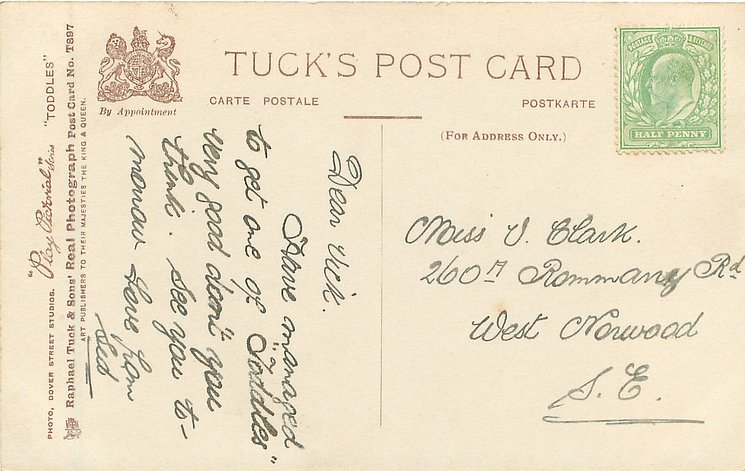 TUCK'S POST CARD
CARTE POSTALE
POSTKARTE
(FOR ADDRESS ONLY.)
By Appointment
POSTAGE
HALF PENNY
"Play Pictorial" Series "TODDLES"
PHOTO, DOVER STREET STUDIOS.
Raphael Tuck & Sons' Real Photograph Post Card No. T897
ART PUBLISHERS TO THEIR MAJESTIES THE KING & QUEEN.
Dear Vick.
Have managed
to get one of "Toddles"
very good don't you
think. See you to-
morrow Love from
Sid
Miss V. Clark.
260 Rommany Rd
West Norwood
S. E.